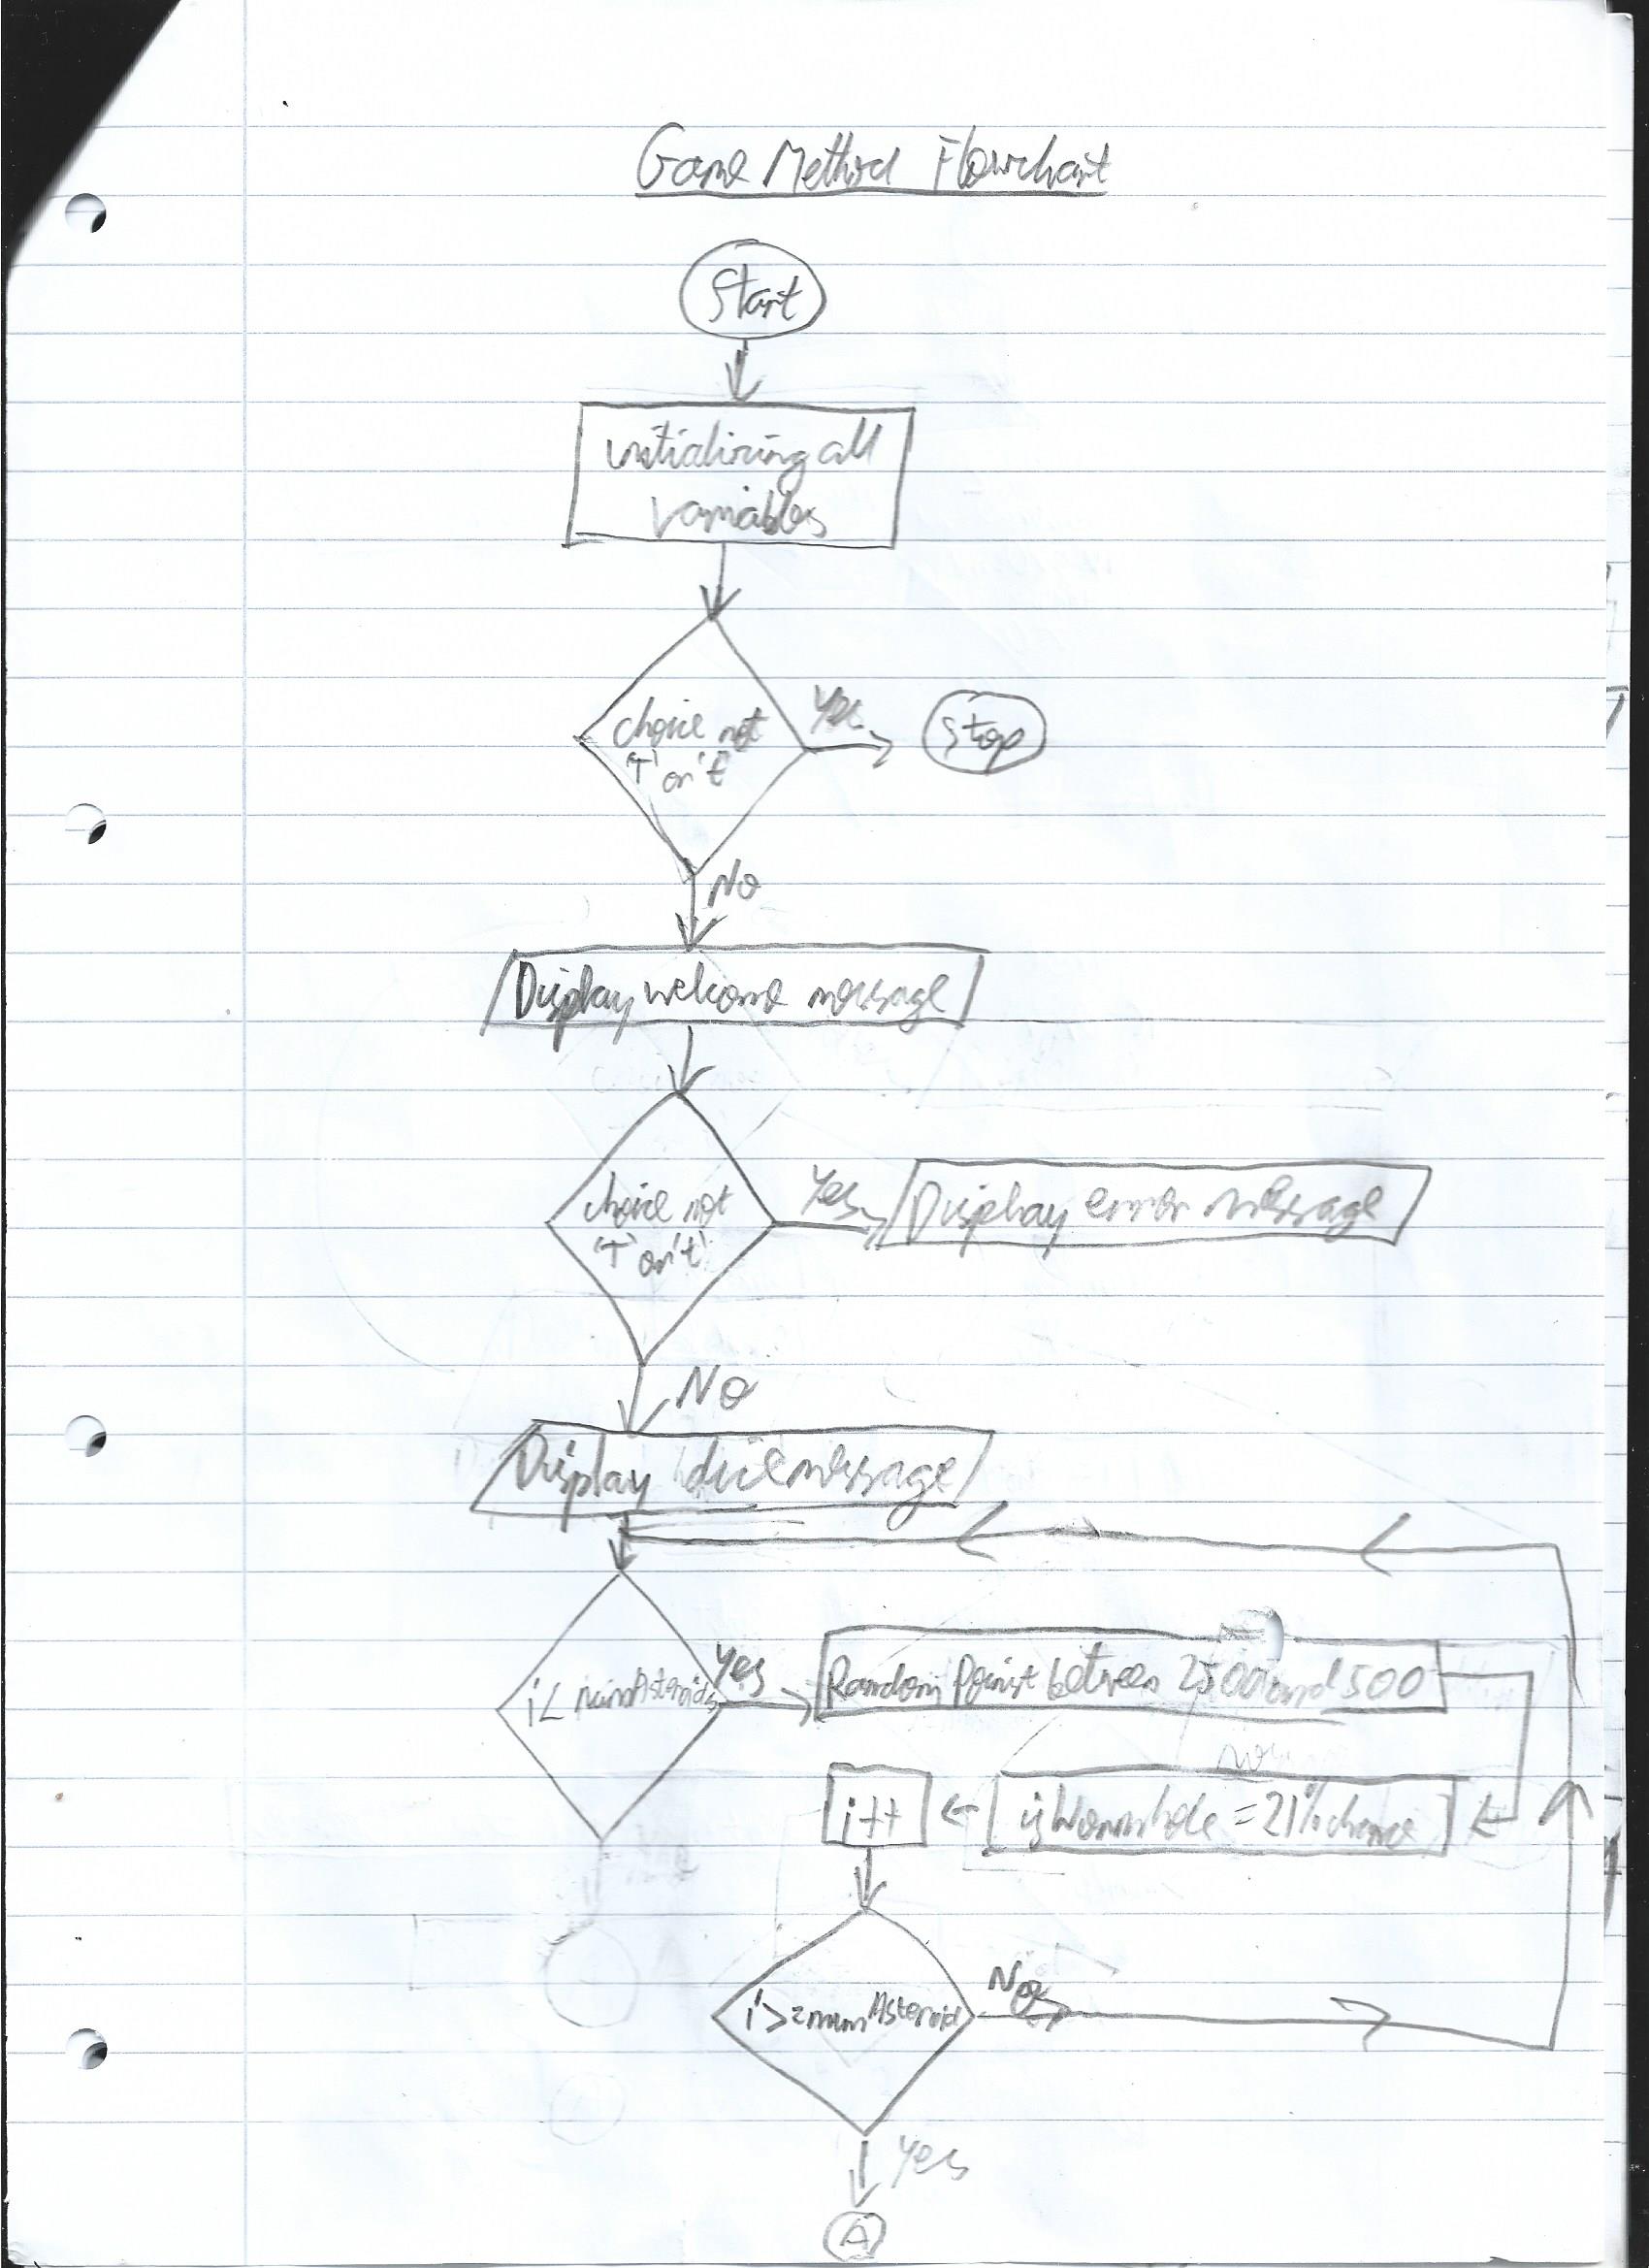 Game Method Flowchart
Start
initializing all
variables
choice not
'T' or 't'
Yes
Stop
No
Display welcome message
choice not
'T' or 't'
Yes
Display error message
No
Display message
i < numAsteroids
Yes
Random Point between 2500 and 500
isWormhole = 21% chance
i++
i >= numAsteroid
No
Yes
A